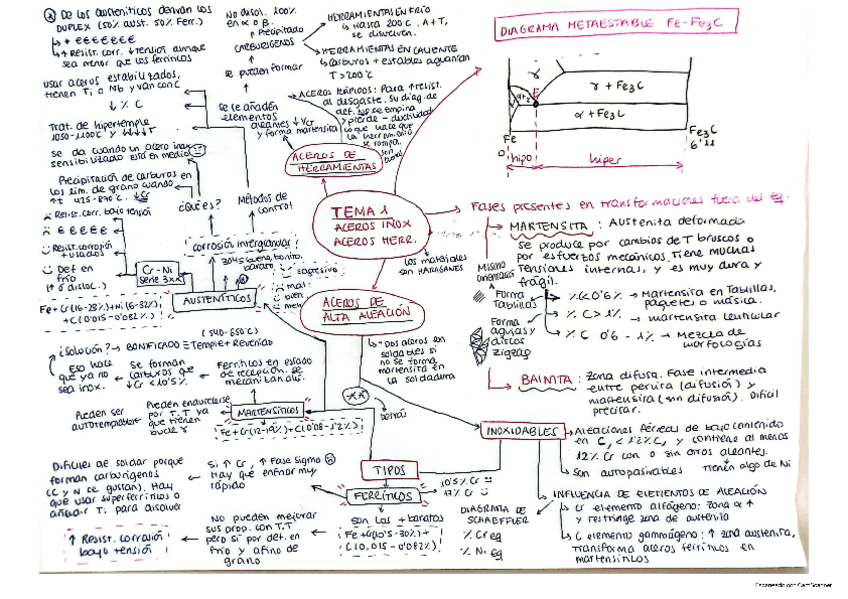 De los austeníticos derivan los
DUPLEX (50% aust. 50% Ferr.)
+ €€€€€€€
+ Resist. corr. ↓ tensión aunque
sea menor que los ferríticos
usar aceros estabilizados,
tienen Ti o Nb y van con C
↓% C
Trat. de hipertemple
1050-1100C y ↓↓↓↓T
se da cuando un acero inox
sensibilizado está en medio
Precipitación de carburos en
los lim. de grano cuando
↓ Cr
¿Qué es?
Métodos de
control
Resist. corr. bajo tensión
€€€€€€
Resist. corrosión
+ usados
Def en
frío
(↑ disloc.)
Cr-Ni
serie 3xx
corrosión intergranular
AUSTENÍTICOS
Fe + Cr(16-28%) + Ni(6-32%)
+ C(0'015-0'082%)
No disol. 100%
en α o β.
Precipitado
CARBURÍGENOS
se pueden formar
Se le añaden
elementos
aleantes ↓ γ Cr
y forma martensita
HERRAMIENTAS EN FRÍO
Hasta 200 C. A +T,
se disuelven.
HERRAMIENTAS EN CALIENTE
Carburos + estables aguantan
T > 200°C
al desgaste. Su diag. de
def. No se empina
y pierde ductilidad
lo que hace que
la herramienta
se rompa
ACEROS DE
HERRAMIENTAS
TEMA 1
ACEROS INOX
ACEROS HERR.
los materiales
son HARAGANES
ACEROS DE
ALTA ALEACIÓN
"Dos aceros son
soldables si
no se forma
martensita en
la soldadura
Detrás
DIAGRAMA METAESTABLE Fe-Fe3C
γ
γ + Fe3C
α + Fe3C
Fe
0
Fe3C
6'11
hipo
hiper
Fases presentes en transformaciones fuera del eq.
MARTENSITA : Austenita deformada
se produce por cambios de T bruscos o
por esfuerzos mecánicos. Tiene muchas
tensiones internas, y es muy dura y
frágil.
Forma
Tablillas
% C < 0'6 % → Martensita en Tablillas,
paquetes o másica.
% C > 1% → martensita lenticular
% C 0'6 - 1% → Mezcla de
morfologías
Forma
agujas y
discos
zigzag
BAINITA : Zona difusa. Fase intermedia
entre perlita (difusión) y
martensita (sin difusión). Difícil
precisar.
(540-650°C)
¿Solución? → BONIFICADO = Temple + Revenido
Eso hace
que ya no
sea inox.
Se forman
carburos que
↓ Cr < 10'5%
Ferríticos en estado
de recepción. Se
mecanizan así.
Pueden ser
autotemplables
Pueden endurecerse
por T.T ya
que tienen
bucle γ
MARTENSÍTICOS
Fe + Cr(12-19%) + C(0'08-1'2%)
INOXIDABLES
Aleaciones férreas de bajo contenido
en C, < 1'2% C, y contiene al menos
12% Cr con o sin otros aleantes.
Tienen algo de Ni
Son autopasivables
Difíciles de soldar porque
forman carburígenos
(C y N le gustan). Hay
que usar superferríticos o
añadir Ti para disolver
Si ↑ Cr, ↑ Fase Sigma
Hay que enfriar muy
rápido
TIPOS
FERRÍTICOS
10'5% Cr
17% Cr
son los + baratos
Fe + Cr(10'5-30%) +
C(0,015-0'082%)
No pueden mejorar
sus prop. con T.T
pero sí por def. en
frío y afino de
grano
↑ Resist. corrosión
bajo tensión
DIAGRAMA DE
SCHAEFFLER
% Cr eq
% Ni eq
INFLUENCIA DE ELEMENTOS DE ALEACIÓN
Cr elemento alfágeno: Zona α ↑
y restringe zona de austenita
C elemento gammágeno: ↑ zona austenita,
transforma aceros ferríticos en
martensíticos
Escaneado con CamScanner